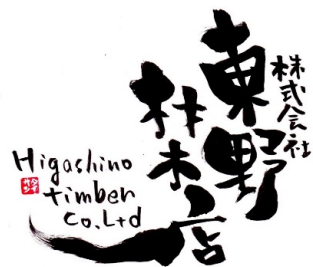 株式会社
東野
材木店
Higashino
timber
Co.Ltd